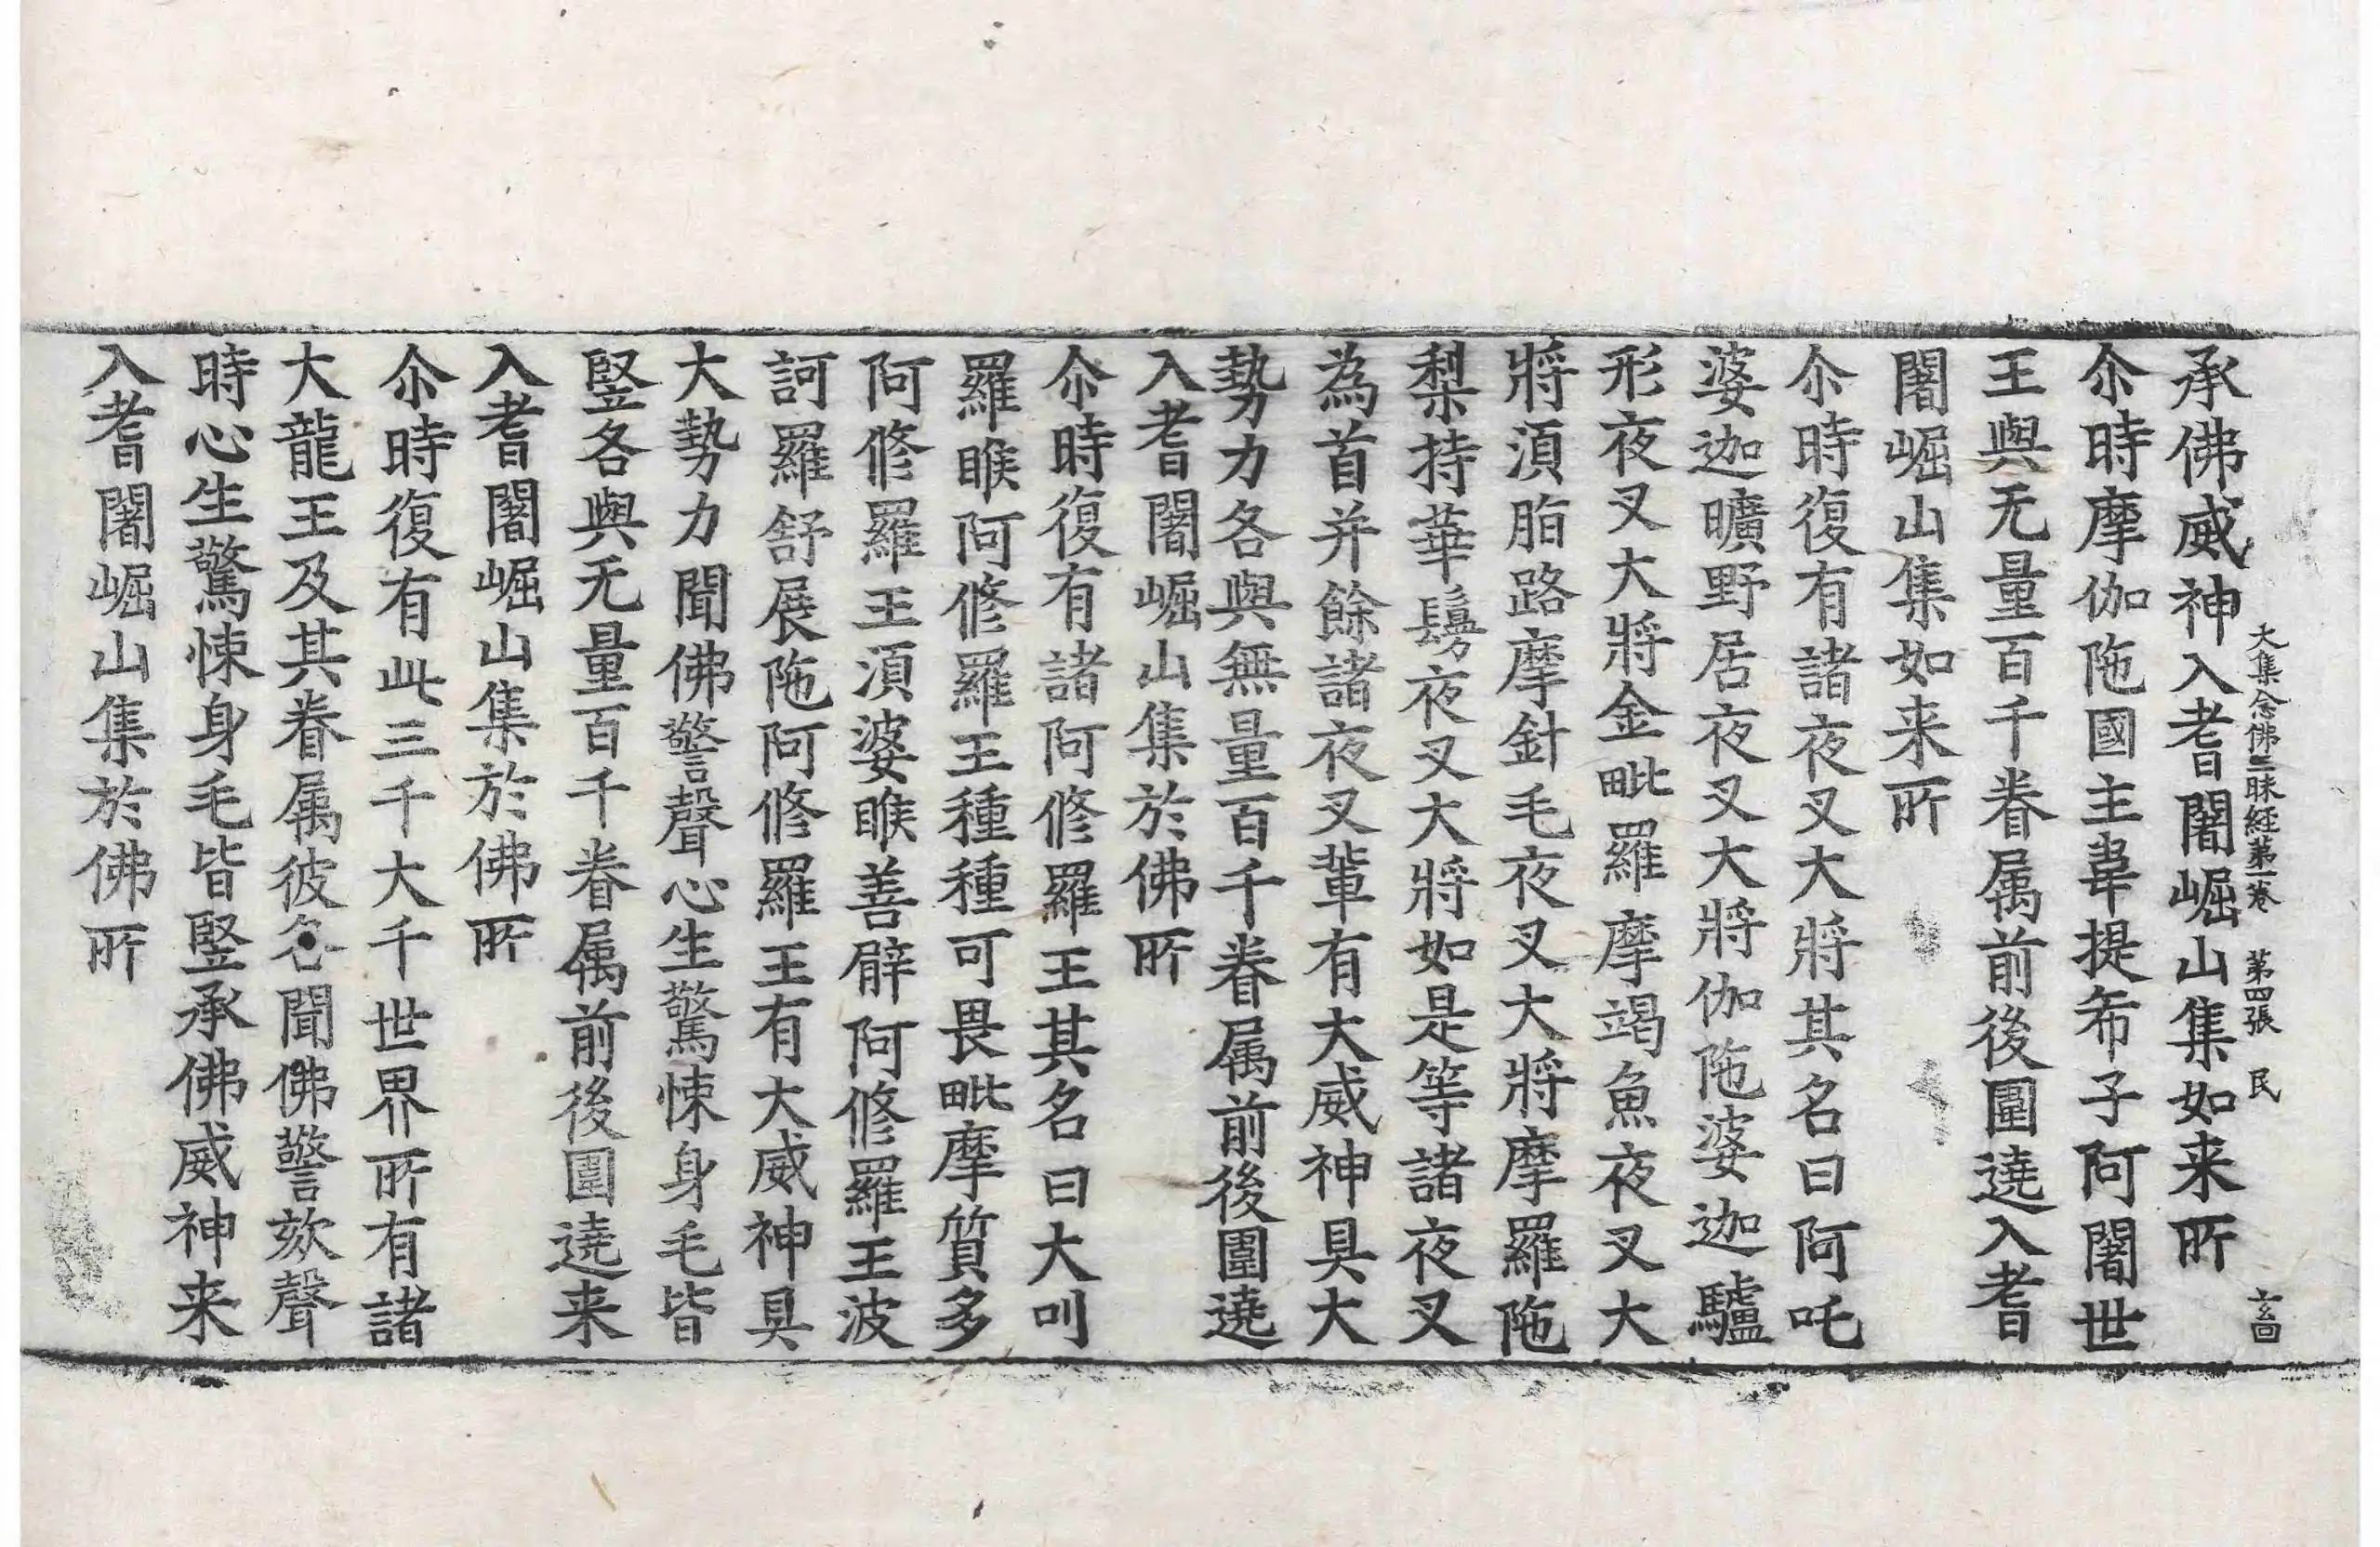 承佛威神入耆闍崛山集如来所
大集念佛三昧経第一卷　第四張　民
尒時摩伽陁國主韋提希子阿闍世
王與无量百千眷属前後圍遶入耆
闍崛山集如来所
尒時復有諸夜叉大將其名曰阿吒
婆迦曠野居夜叉大將伽陁婆迦驢
形夜叉大將金毗羅摩竭魚夜叉大
將湏脂路摩針毛夜叉大將摩羅陁
梨持華鬘夜叉大將如是等諸夜叉
為首并餘諸夜叉輩有大威神具大
勢力各與無量百千眷属前後圍遶
入耆闍崛山集於佛所
尒時復有諸阿修羅王其名曰大叫
羅睺阿修羅王種種可畏毗摩質多
阿修羅王湏婆睺善臂阿修羅王波
訶羅舒展陁阿修羅王有大威神具
大勢力聞佛警聲心生驚悚身毛皆
竪各與无量百千眷属前後圍遶来
入耆闍崛山集於佛所
尒時復有此三千大千世界所有諸
大龍王及其眷属彼各聞佛警欬聲
時心生驚悚身毛皆竪承佛威神来
入耆闍崛山集於佛所